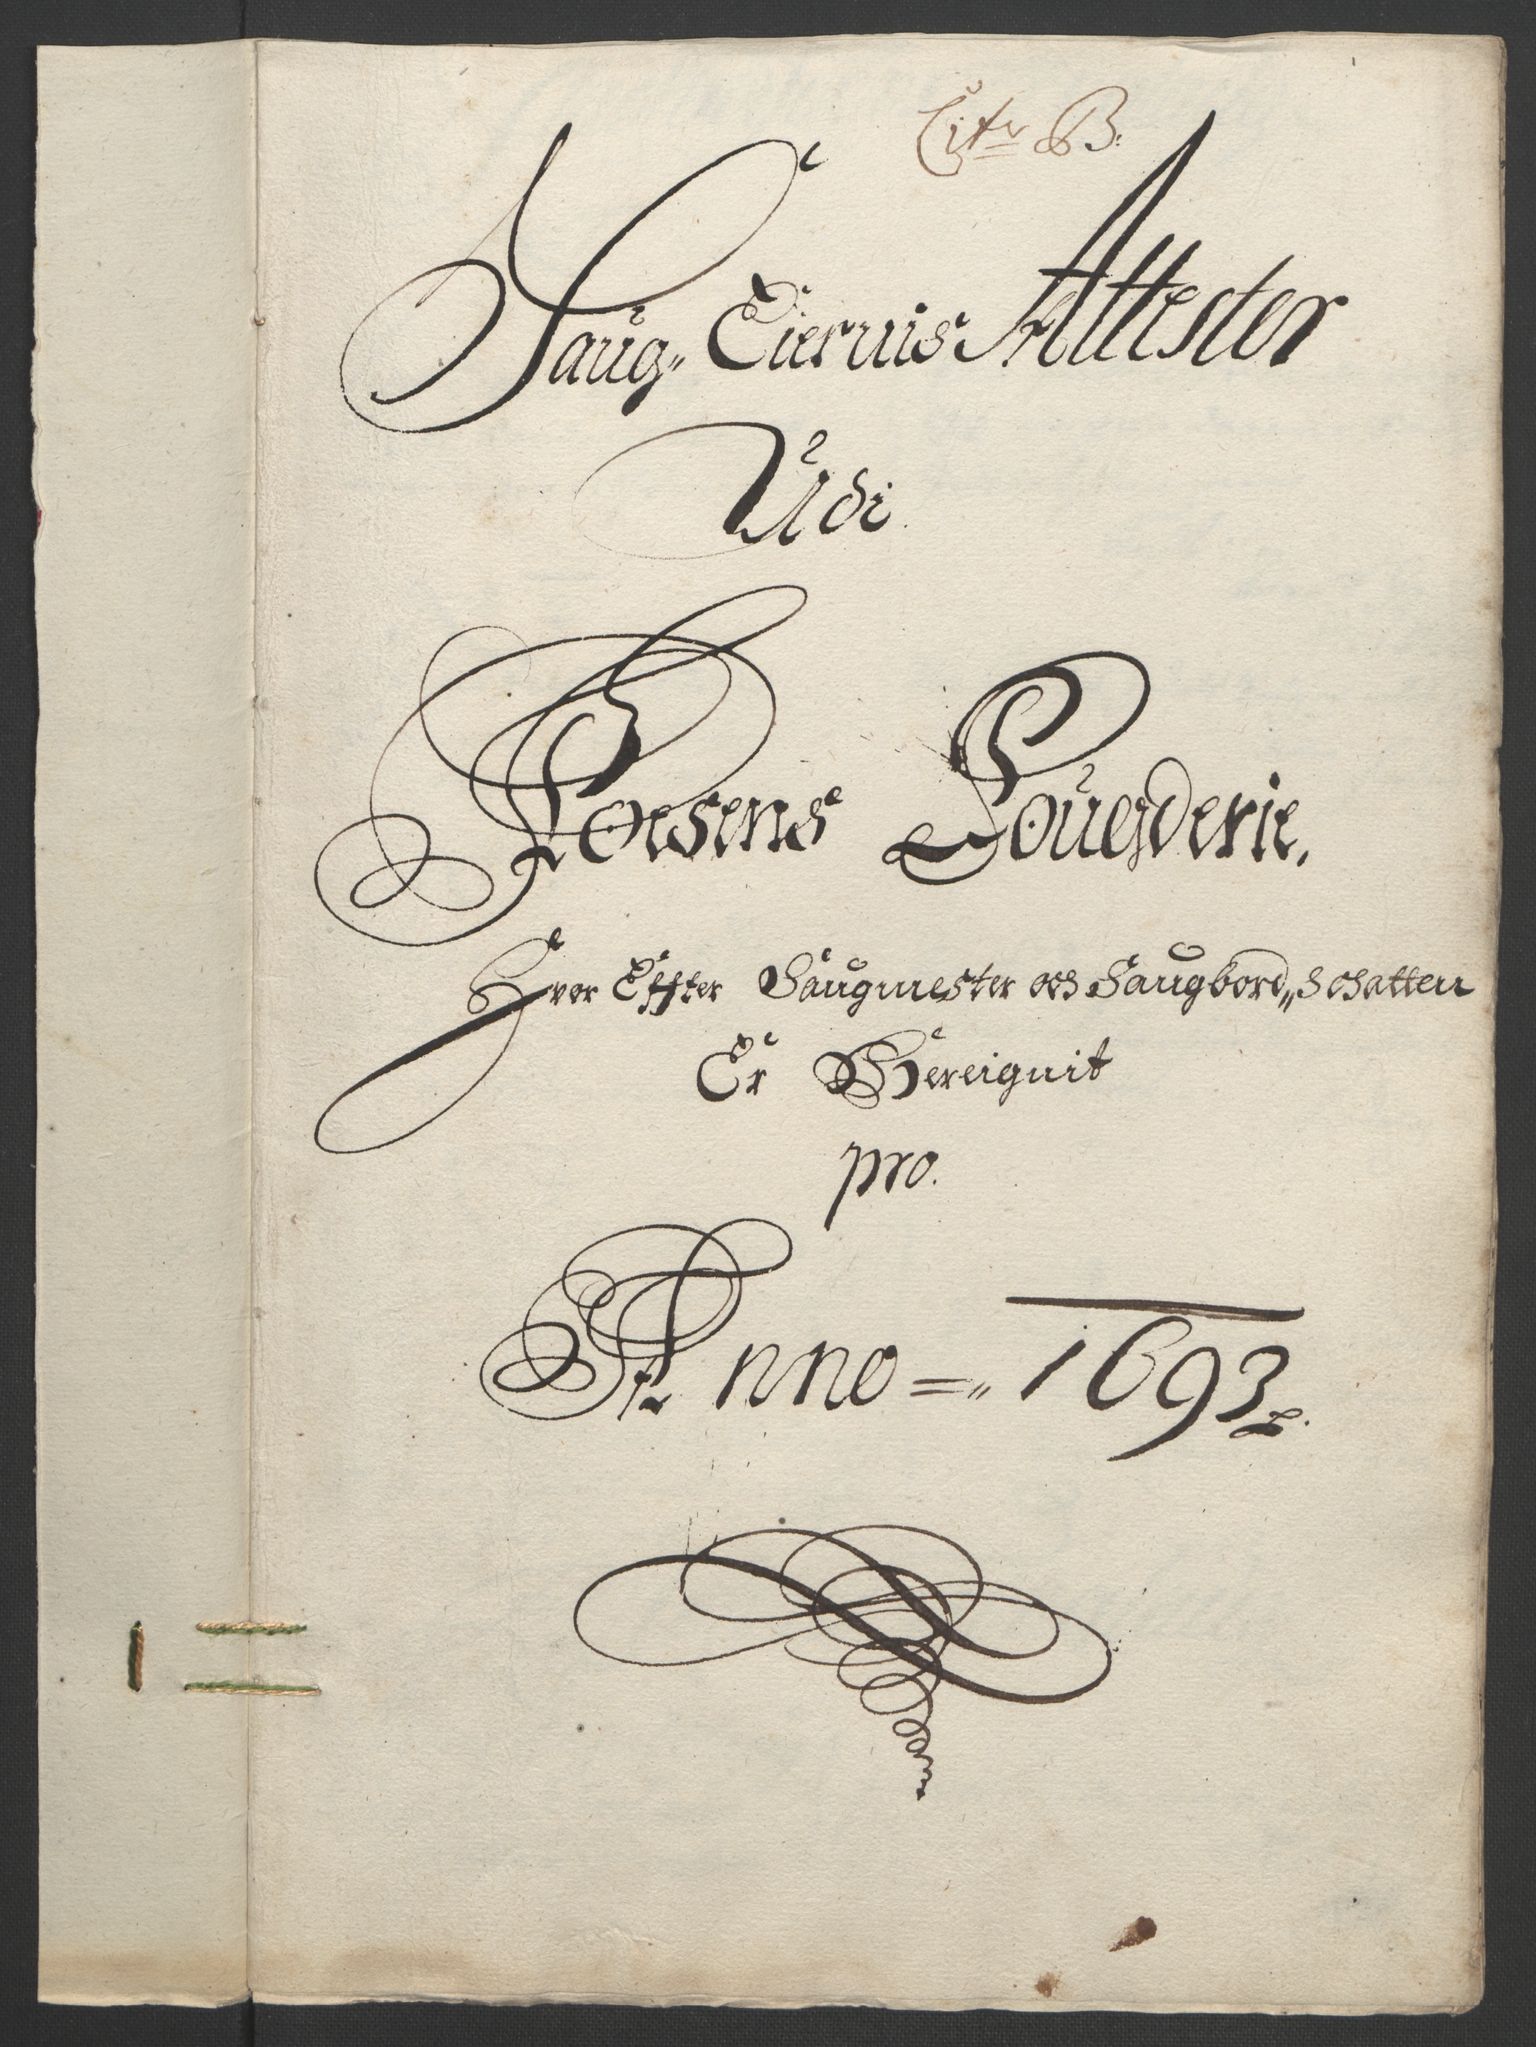 Litr B:
Saug„ Eiernis Attester
Udi
Fosens Fougderie,
Hvor Effter Saugmester och Saugbord„Schatten
Er Bereignit
pro.
Anno =„ 1693